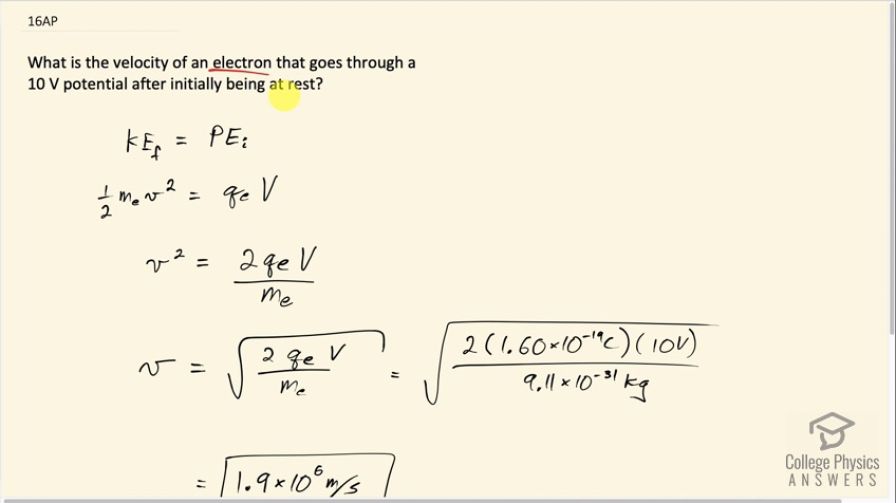 16AP
What is the velocity of an electron that goes through a
10 V potential after initially being at rest?
KE_f = PE_i
1/2 m_e v^2 = q_e V
v^2 = 2 q_e V / m_e
v = √(2 q_e V / m_e) = √(2(1.60×10^-19 C)(10V) / 9.11×10^-31 kg)
= 1.9×10^6 m/s
College Physics
ANSWERS